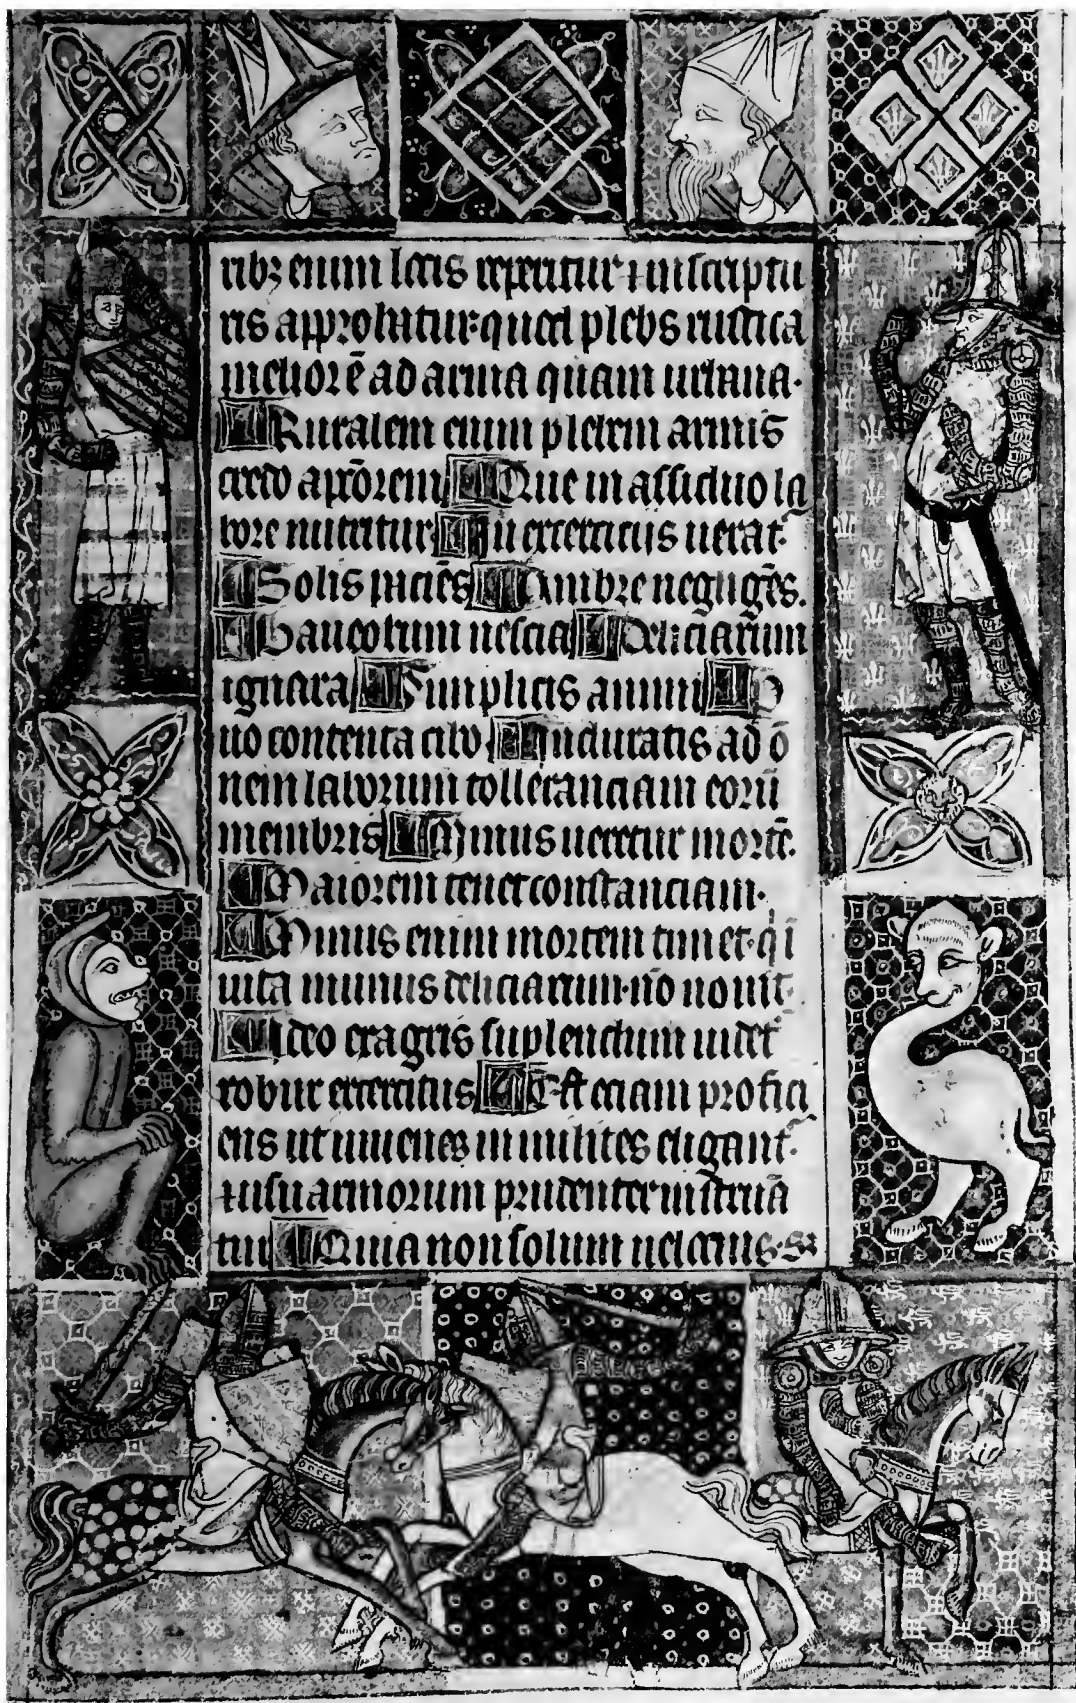 rib⁊ enim locis reperitur ⁊ in scriptu
ris approbatur· quod plebs rustica
melior ē ad arma quam urbana·
Ruralem enim plebem armis
credo apciorem Que in assiduo la
bore nutritur In exercitiis uerat·
Solis paciēs Umbre negligēs.
Balneorum nescia Deliciarum
ignara Simplicis animi P
uo contenta cibo Induratis ad ō
nem laborum tolleranciam eorū
membris Minus ueretur mortē·
Maiorem tenet constanciam·
Minus enim mortem timet· qͥ ī
uita minus deliciarum· nō nouit·
Ideo ex agris suplendum uidet᷑
robur exercitus Est eciam profici
ens ut iuuenes in milites eligant᷑·
⁊ usu armorum prudenter instruā
tur Quia non solum uelocius· s⁊